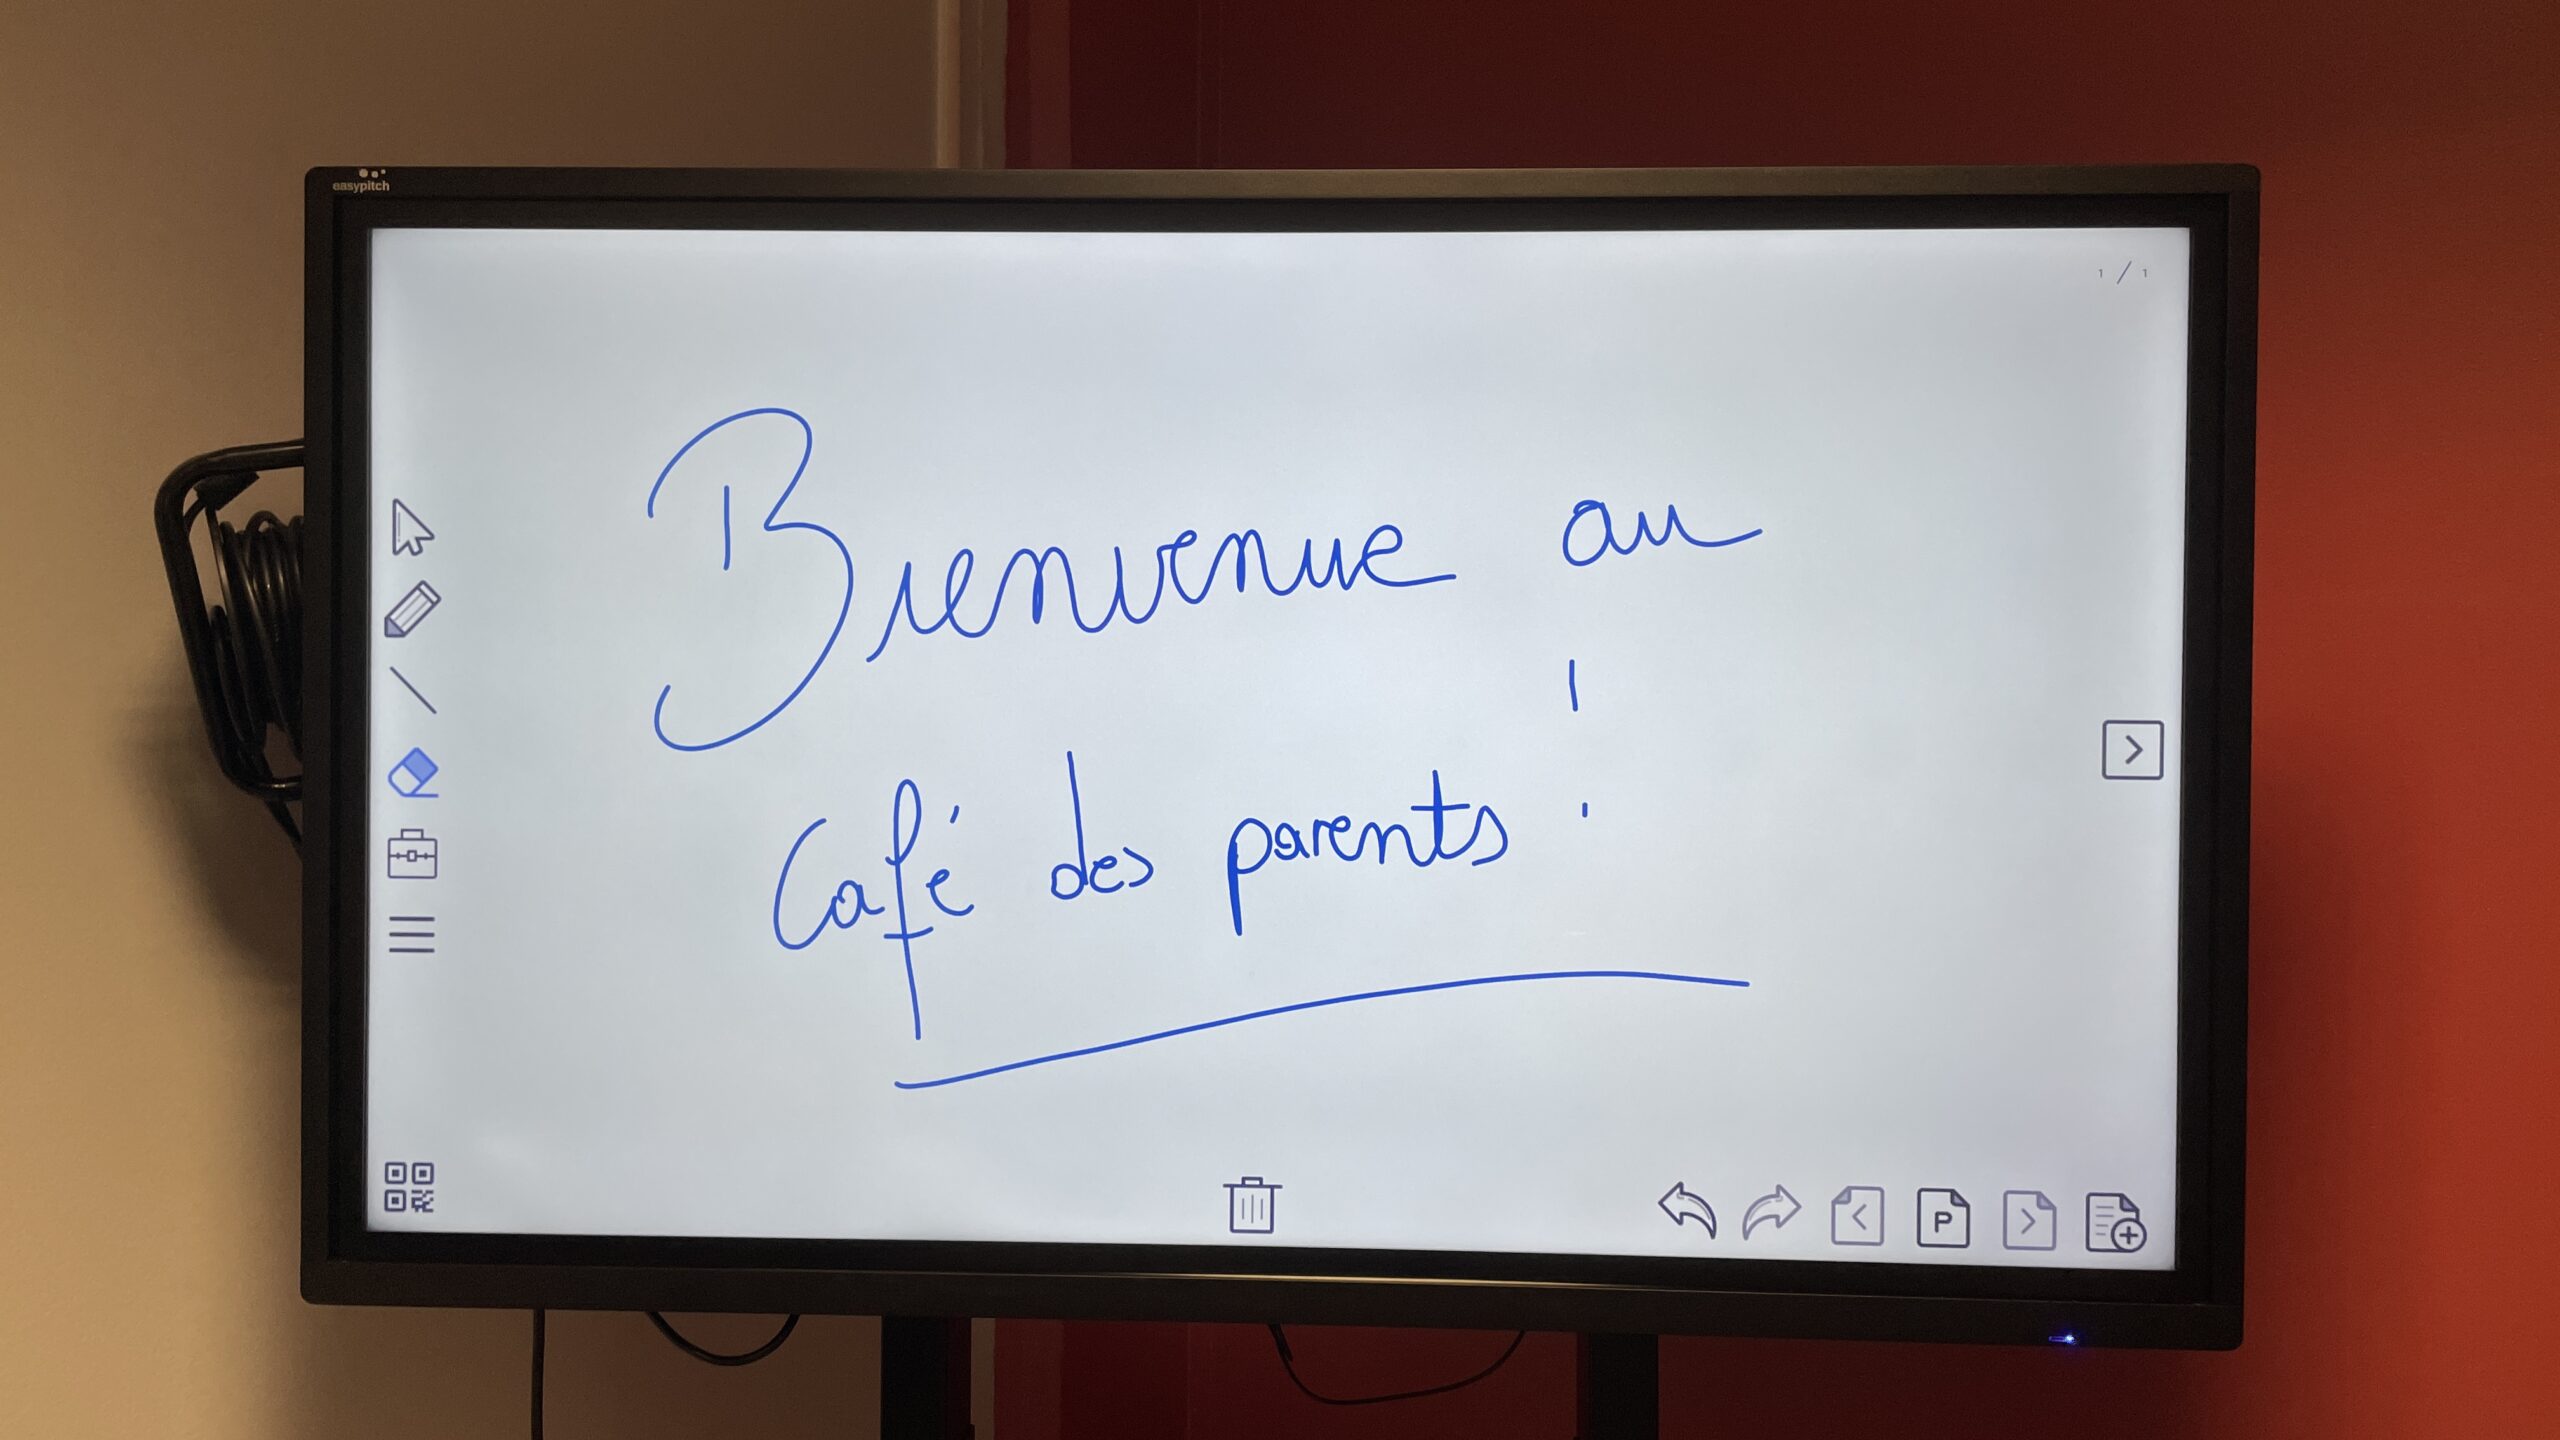 easypitch
1 / 1
Bienvenue au
Café des parents !
P